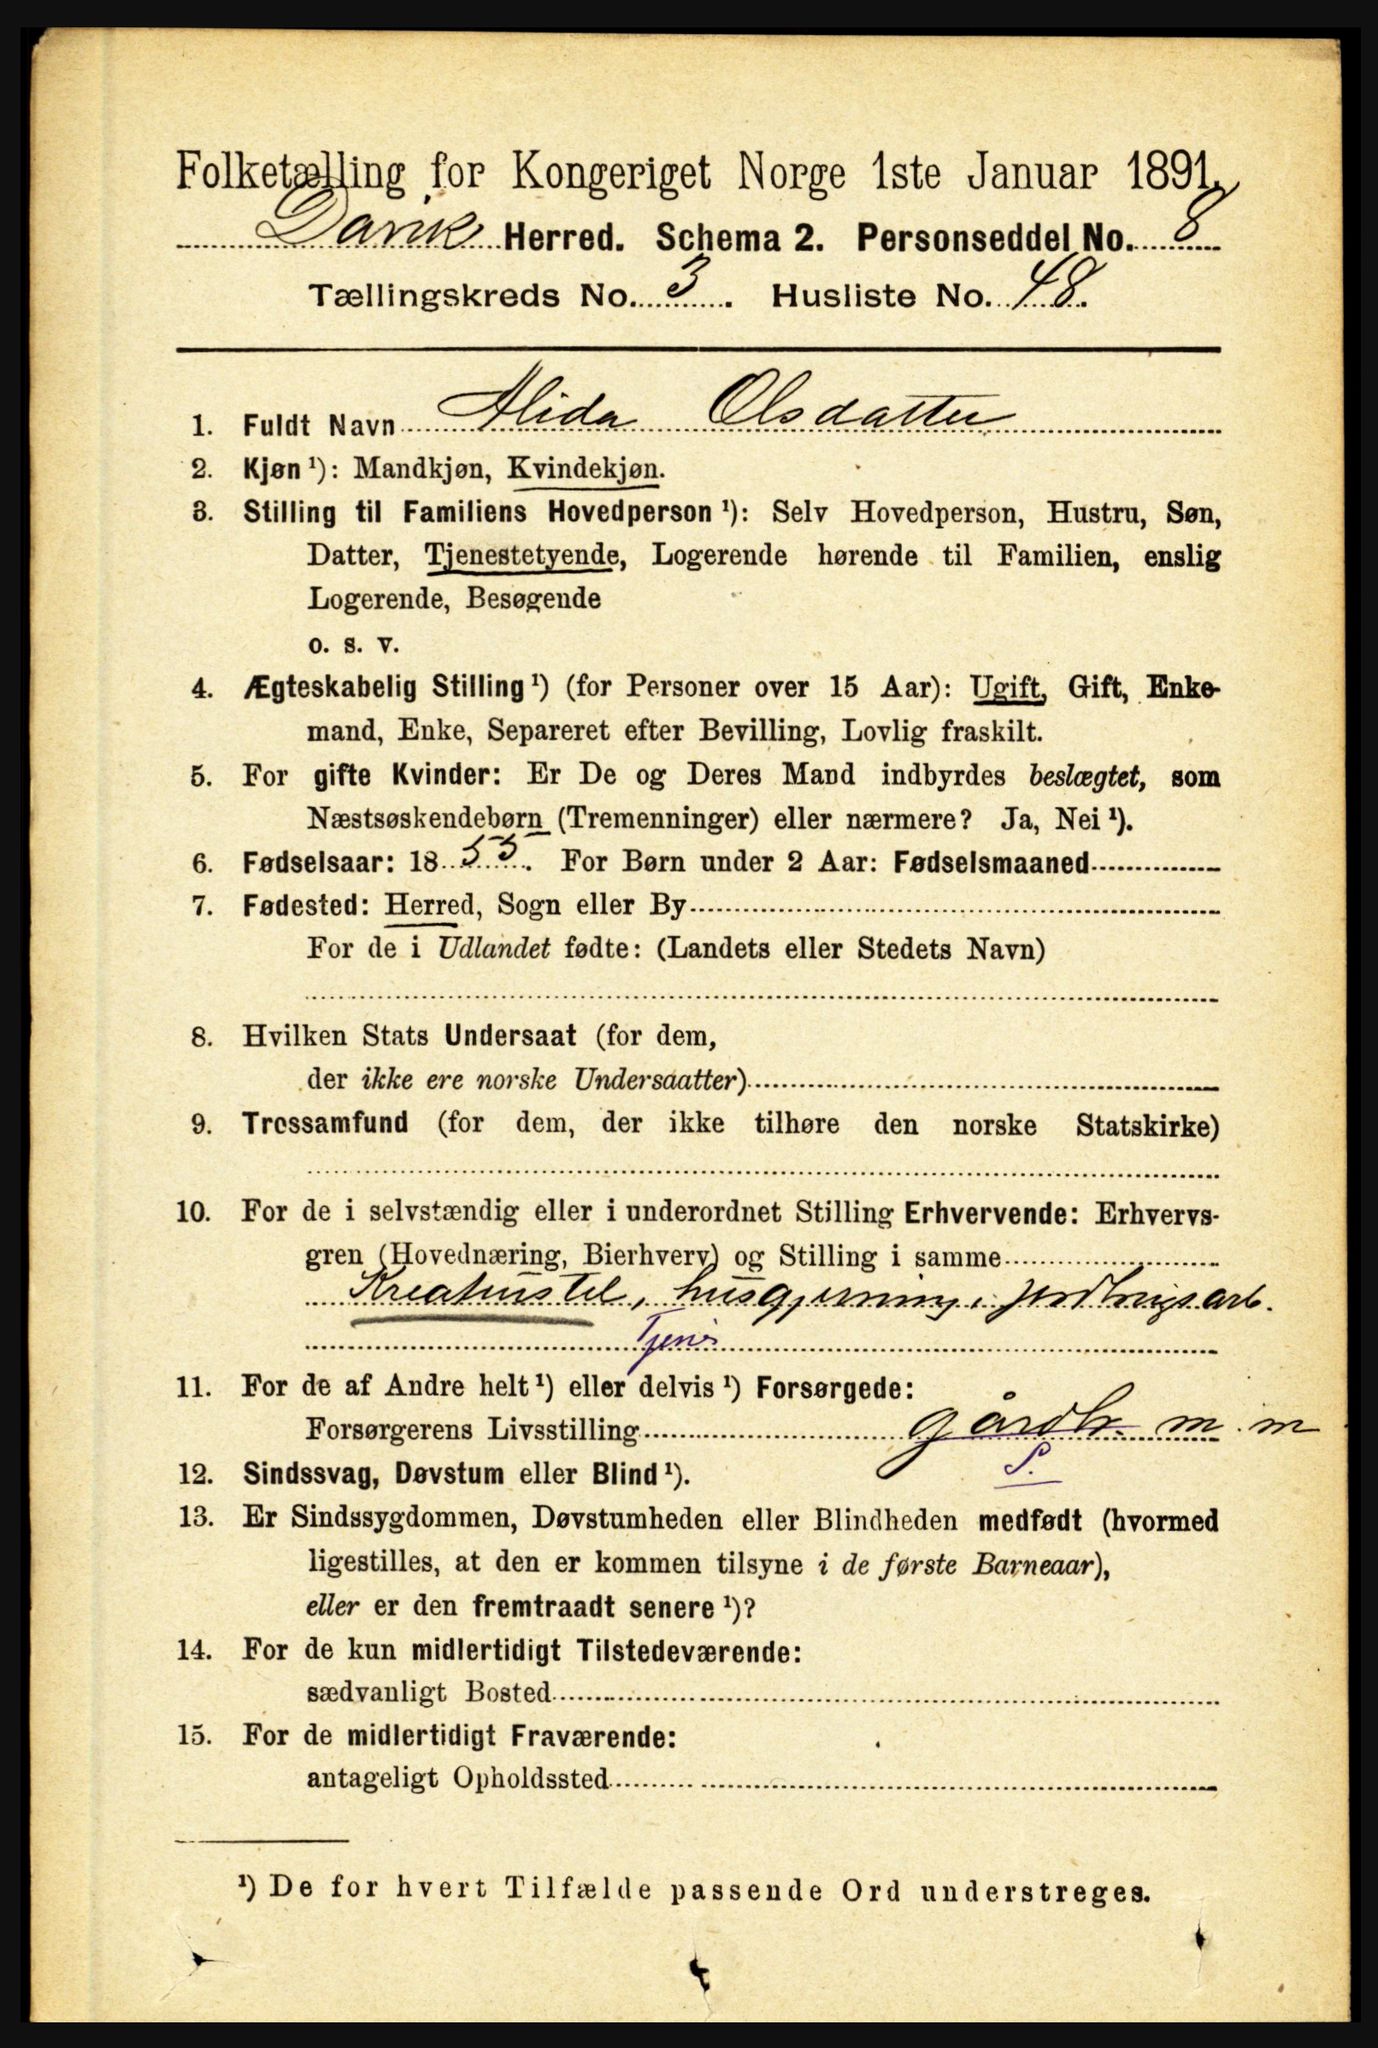 Folketælling for Kongeriget Norge 1ste Januar 1891.
Davik Herred. Schema 2. Personseddel No. 8
Tællingskreds No. 3. Husliste No. 48.
1. Fuldt Navn Alida Olsdatter
2. Kjøn ¹): Mandkjøn, Kvindekjøn.
3. Stilling til Familiens Hovedperson ¹): Selv Hovedperson, Hustru, Søn,
Datter, Tjenestetyende, Logerende hørende til Familien, enslig
Logerende, Besøgende
o. s. v.
4. Ægteskabelig Stilling ¹) (for Personer over 15 Aar): Ugift, Gift, Enke-
mand, Enke, Separeret efter Bevilling, Lovlig fraskilt.
5. For gifte Kvinder: Er De og Deres Mand indbyrdes beslægtet, som
Næstsøskendebørn (Tremenninger) eller nærmere? Ja, Nei ¹).
6. Fødselsaar: 1855. For Børn under 2 Aar: Fødselsmaaned
7. Fødested: Herred, Sogn eller By
For de i Udlandet fødte: (Landets eller Stedets Navn)
8. Hvilken Stats Undersaat (for dem,
der ikke ere norske Undersaatter)
9. Trossamfund (for dem, der ikke tilhøre den norske Statskirke)
10. For de i selvstændig eller i underordnet Stilling Erhvervende: Erhvervs-
gren (Hovednæring, Bierhverv) og Stilling i samme
Kreaturstel, husgjerning, jordbrugsarb.
Tjener
11. For de af Andre helt ¹) eller delvis ¹) Forsørgede:
Forsørgerens Livsstilling gårdb. m. m
S.
12. Sindssvag, Døvstum eller Blind ¹).
13. Er Sindssygdommen, Døvstumheden eller Blindheden medfødt (hvormed
ligestilles, at den er kommen tilsyne i de første Barneaar),
eller er den fremtraadt senere ¹)?
14. For de kun midlertidigt Tilstedeværende:
sædvanligt Bosted
15. For de midlertidigt Fraværende:
antageligt Opholdssted
¹) De for hvert Tilfælde passende Ord understreges.